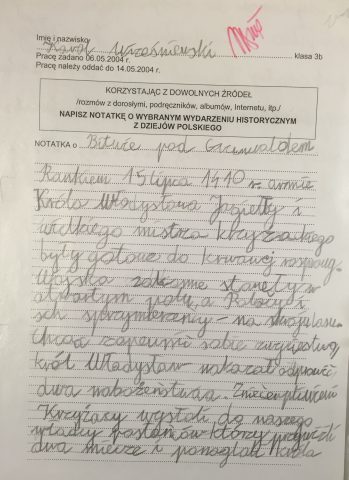 Imię i nazwisko
Karol Wrześniewski klasa 3b
Pracę zadano 06.05.2004 r.
Pracę należy oddać do 14.05.2004 r.
KORZYSTAJĄC Z DOWOLNYCH ŹRÓDEŁ
/rozmów z dorosłymi, podręczników, albumów, Internetu, itp./
NAPISZ NOTATKĘ O WYBRANYM WYDARZENIU HISTORYCZNYM
Z DZIEJÓW POLSKIEGO
NOTATKA o Bitwie pod Grunwaldem
Rankiem 15 lipca 1410 r. armie
Króla Władysława Jagiełły i
wielkiego mistrza krzyżackiego
były gotowe do krwawej rozpraw.
Wojska zakonne stanęły w
otwartym polu, a Polacy i
ich sprzymierzeńcy - na skraju lasu.
Chcąc zapewnić sobie zwycięstwo,
król Władysław nakazał odprawić
dwa nabożeństwa. Zniecierpliwieni
Krzyżacy wysłali do naszego
władcy posłańców którzy przynieśli
dwa miecze i ponaglali Króla